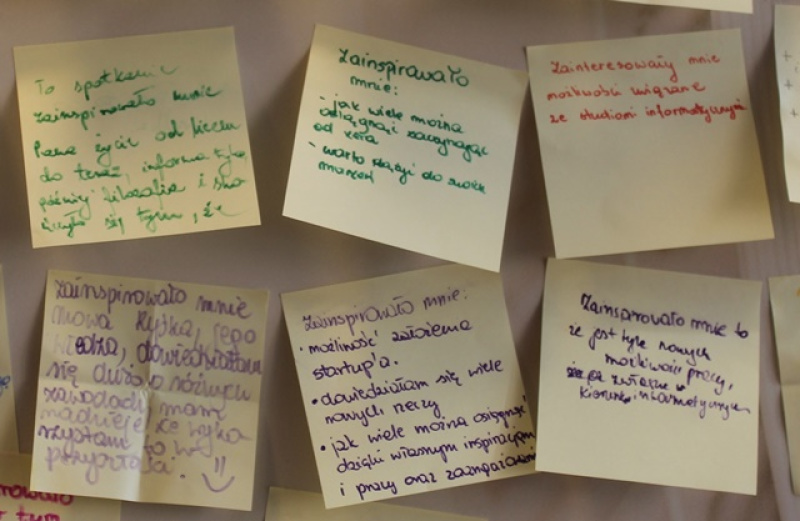 To spotkanie
zainspirowało mnie
Pana życie od liceum
do teraz, informatyka,
później filozofia i sko
ńczyło się tym, że
Zainspirowało
mnie:
- jak wiele można
osiągnąć zaczynając
od zera
- warto dążyć do swoich
marzeń
Zainteresowały mnie
możliwości związane
ze studiami informatycznymi
Zainspirowało mnie
mowa Ryśka, jego
wiedza, dowiedziałam
się dużo o różnych
zawodach mam
nadzieję że
to w
przyszłości.
Zainspirowało mnie:
• możliwość założenia
startup'a.
• dowiedziałam się wiele
nowych rzeczy
• jak wiele można osiągnąć
dzięki własnym inspiracjom
i pracy oraz zaangażowaniu
Zainspirowało mnie to
że jest tyle nowych
możliwości pracy,
zwłaszcza w
kierunku informatycznym